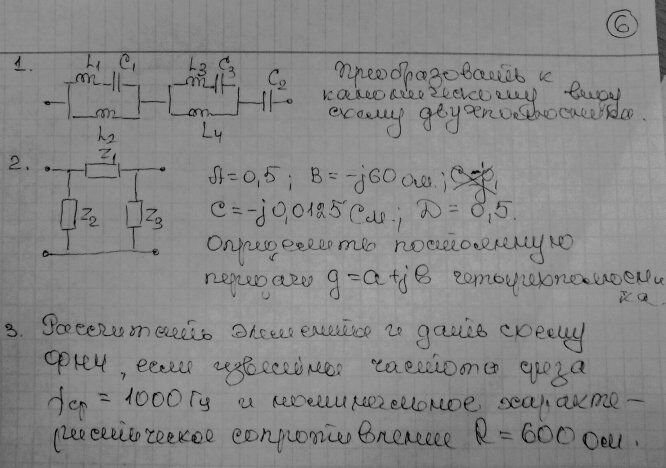 6
1.
L₁ C₁ L₃ C₃ C₂
L₂ L₄
Преобразовать к
каноническому виду
схему двухполюсника.
2.
Z₁
Z₂ Z₃
A=0,5; B=-j60 ом.;
C=-j0,0125 См.; D=0,5.
Определить постоянную
передачи g=a+jb четырехполюсни
ка
3. Рассчитать элементы и дать схему
ФНЧ, если известны частота среза
fср = 1000 Гц и номинальное характе-
ристическое сопротивление R = 600 ом.